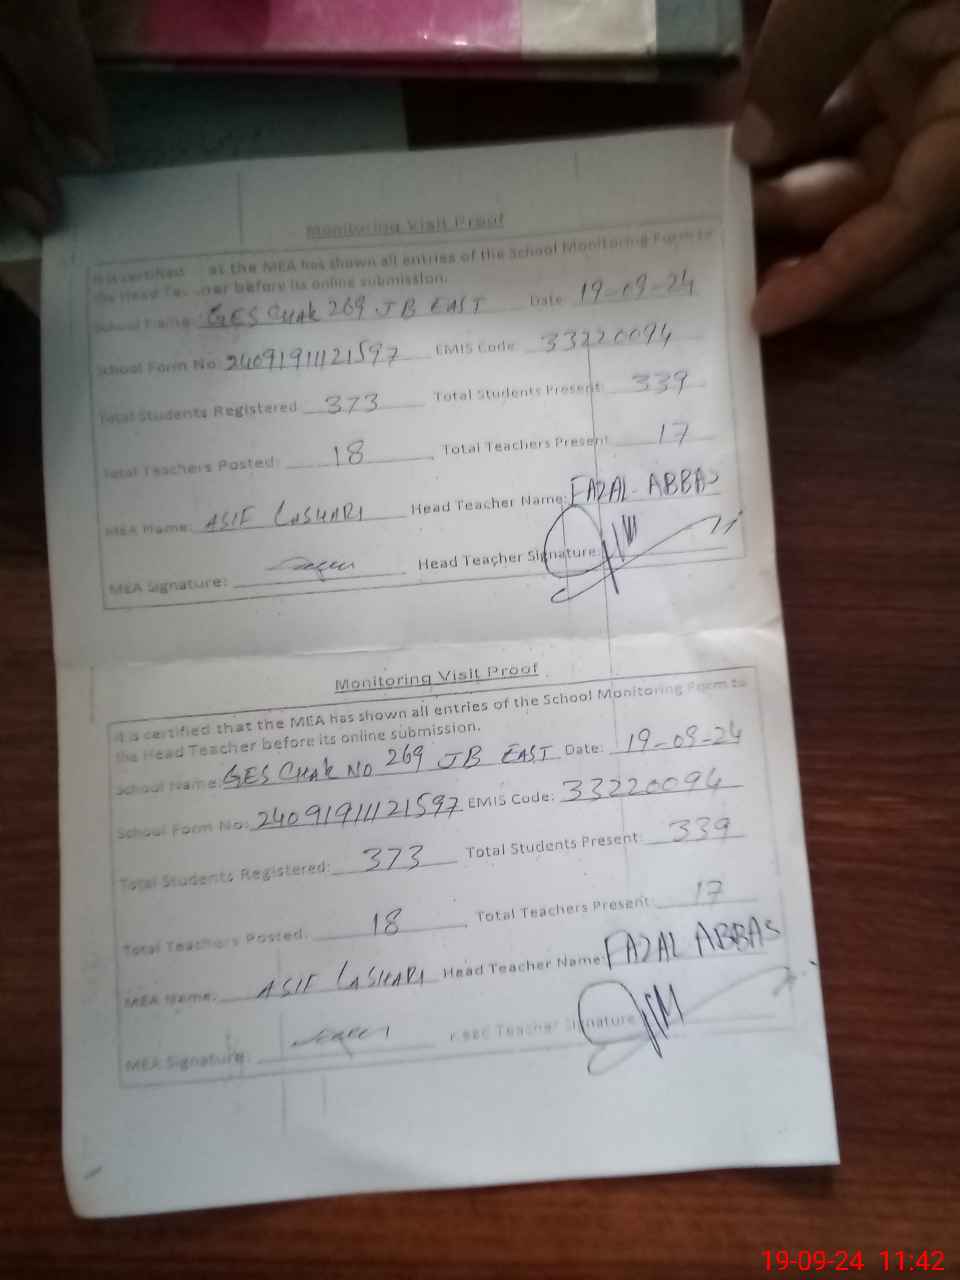 Monitoring Visit Proof
It is certified at the MEA has shown all entries of the School Monitoring Form to
the Head Teacher before its online submission.
School Name: GES CHAK 269 JB EAST Date 19-09-24
School Form No: 24091911121597 EMIS Code: 33220094
Total Students Registered 373 Total Students Present: 339
Total Teachers Posted: 18 Total Teachers Present 17
MEA Name: ASIF LASHARI Head Teacher Name: FAZAL ABBAS
MEA Signature: Head Teacher Signature:
Monitoring Visit Proof
It is certified that the MEA has shown all entries of the School Monitoring Form to
the Head Teacher before its online submission.
School Name: GES CHAK NO 269 JB EAST Date: 19-09-24
School Form No: 24091911121597 EMIS Code: 33220094
Total Students Registered: 373 Total Students Present: 339
Total Teachers Posted: 18 Total Teachers Present: 17
MEA Name: ASIF LASHARI Head Teacher Name: FAZAL ABBAS
MEA Signature: Teacher Signature
19-09-24 11:42